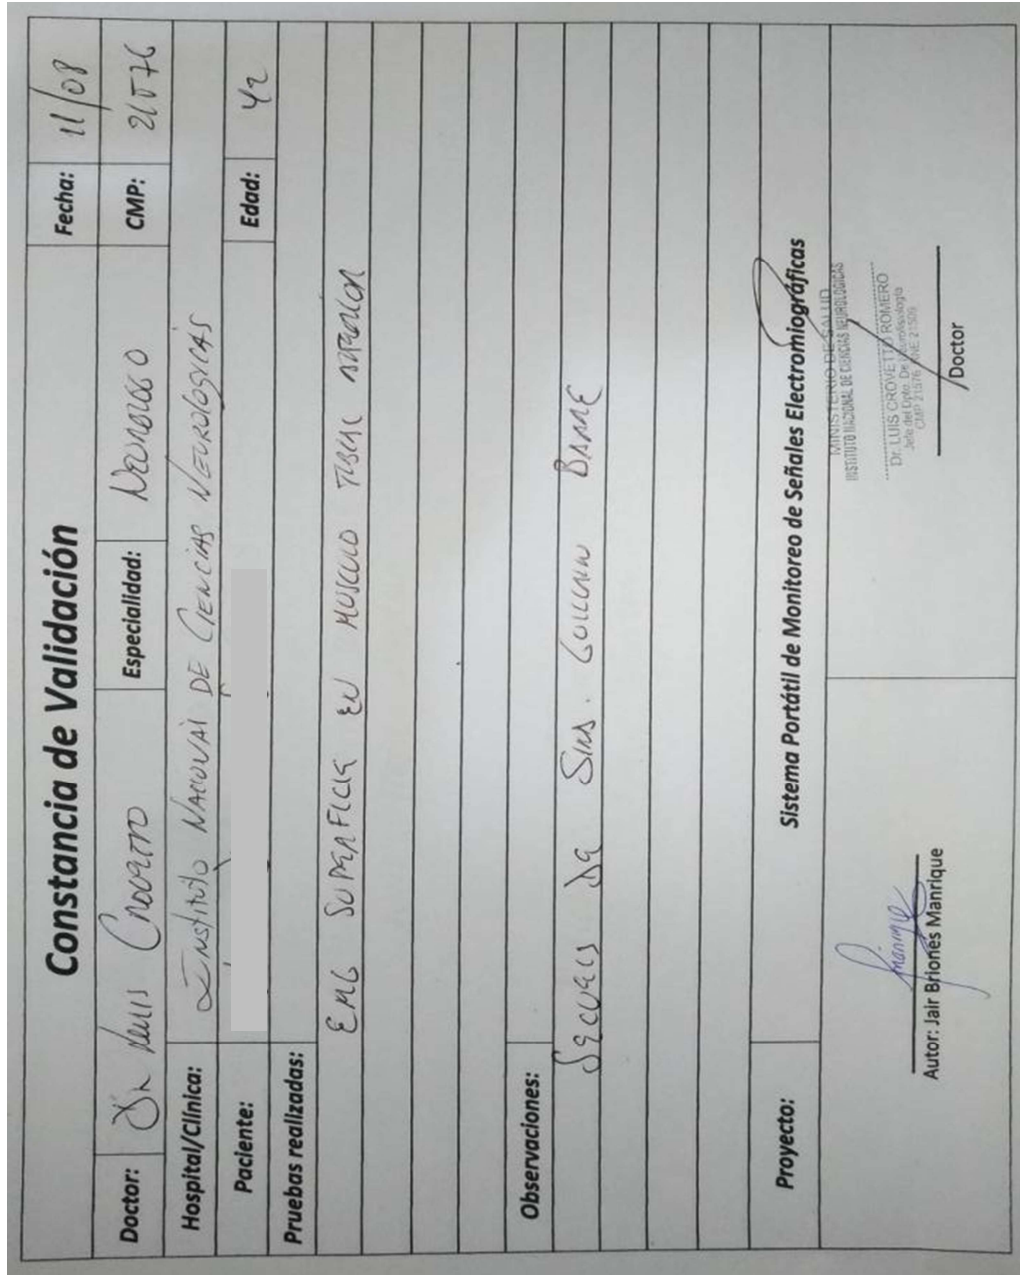 Constancia de Validación
Fecha: 11/08
Doctor: Dr Luis Crovetto Especialidad: Neurologo CMP: 21576
Hospital/Clínica: Instituto Nacional de Ciencias Neurologicas
Paciente: Edad: 42
Pruebas realizadas:
EMG SUPERFICIE EN MUSCULO TIBIAL ANTERIOR
Observaciones:
SECUELA DE SIND. GUILLAIN BARRE
Proyecto: Sistema Portátil de Monitoreo de Señales Electromiográficas
MINISTERIO DE SALUD
INSTITUTO NACIONAL DE CIENCIAS NEUROLOGICAS
Dr. LUIS CROVETTO ROMERO
Jefe del Dpto. De Neurofisiología
CMP 21576 RNE 21509
Doctor
Manrique
Autor: Jair Briones Manrique